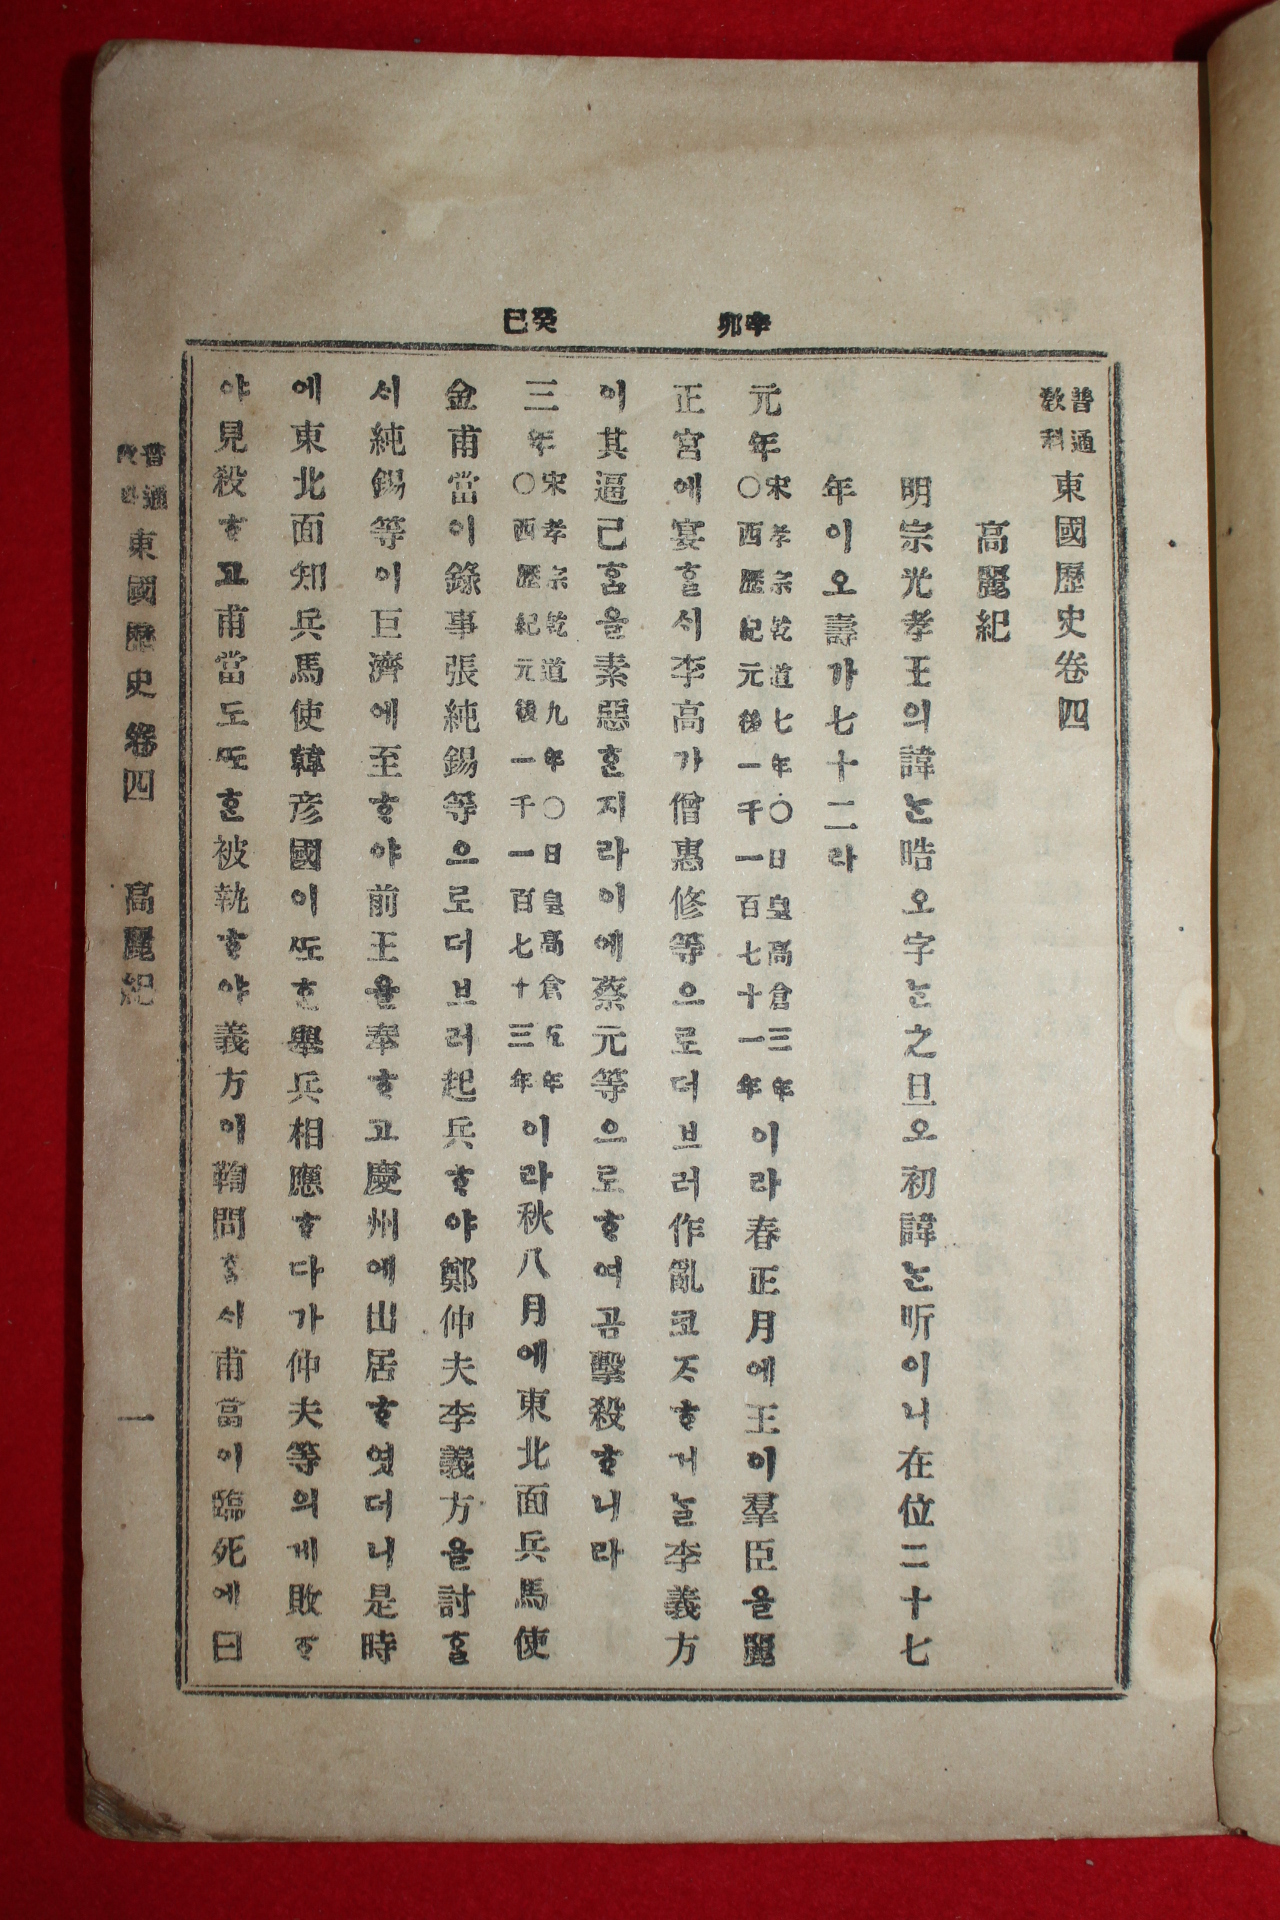 辛卯
癸巳
普通敎科 東國歷史卷四
高麗紀
明宗光孝王의諱ᄂᆞᆫ晧오字ᄂᆞᆫ之旦오初諱ᄂᆞᆫ昕이니在位二十七
年이오壽가七十二라
元年宋孝宗乾道七年○日皇高倉三年○西歷紀元後一千一百七十一年이라春正月에王이羣臣을麗
正宮에宴ᄒᆞᆯᄉᆡ李高가僧惠修等으로더브러作亂코ᄌᆞᄒᆞ거ᄂᆞᆯ李義方
이其逼己홈을素惡ᄒᆞᆫ지라이에蔡元等으로ᄒᆞ여곰擊殺ᄒᆞ니라
三年宋孝宗乾道九年○日皇高倉五年○西歷紀元後一千一百七十三年이라秋八月에東北面兵馬使
金甫當이錄事張純錫等으로더브러起兵ᄒᆞ야鄭仲夫李義方을討ᄒᆞᆯ
ᄉᆡ純錫等이巨濟에至ᄒᆞ야前王을奉ᄒᆞ고慶州에出居ᄒᆞ엿더니是時
에東北面知兵馬使韓彦國이ᄯᅩᄒᆞᆫ擧兵相應ᄒᆞ다가仲夫等의게敗ᄒᆞ
야見殺ᄒᆞ고甫當도ᄯᅩᄒᆞᆫ被執ᄒᆞ야義方이鞫問ᄒᆞᆯᄉᆡ甫當이臨死에曰
普通 東國歷史 卷四 高麗紀 一